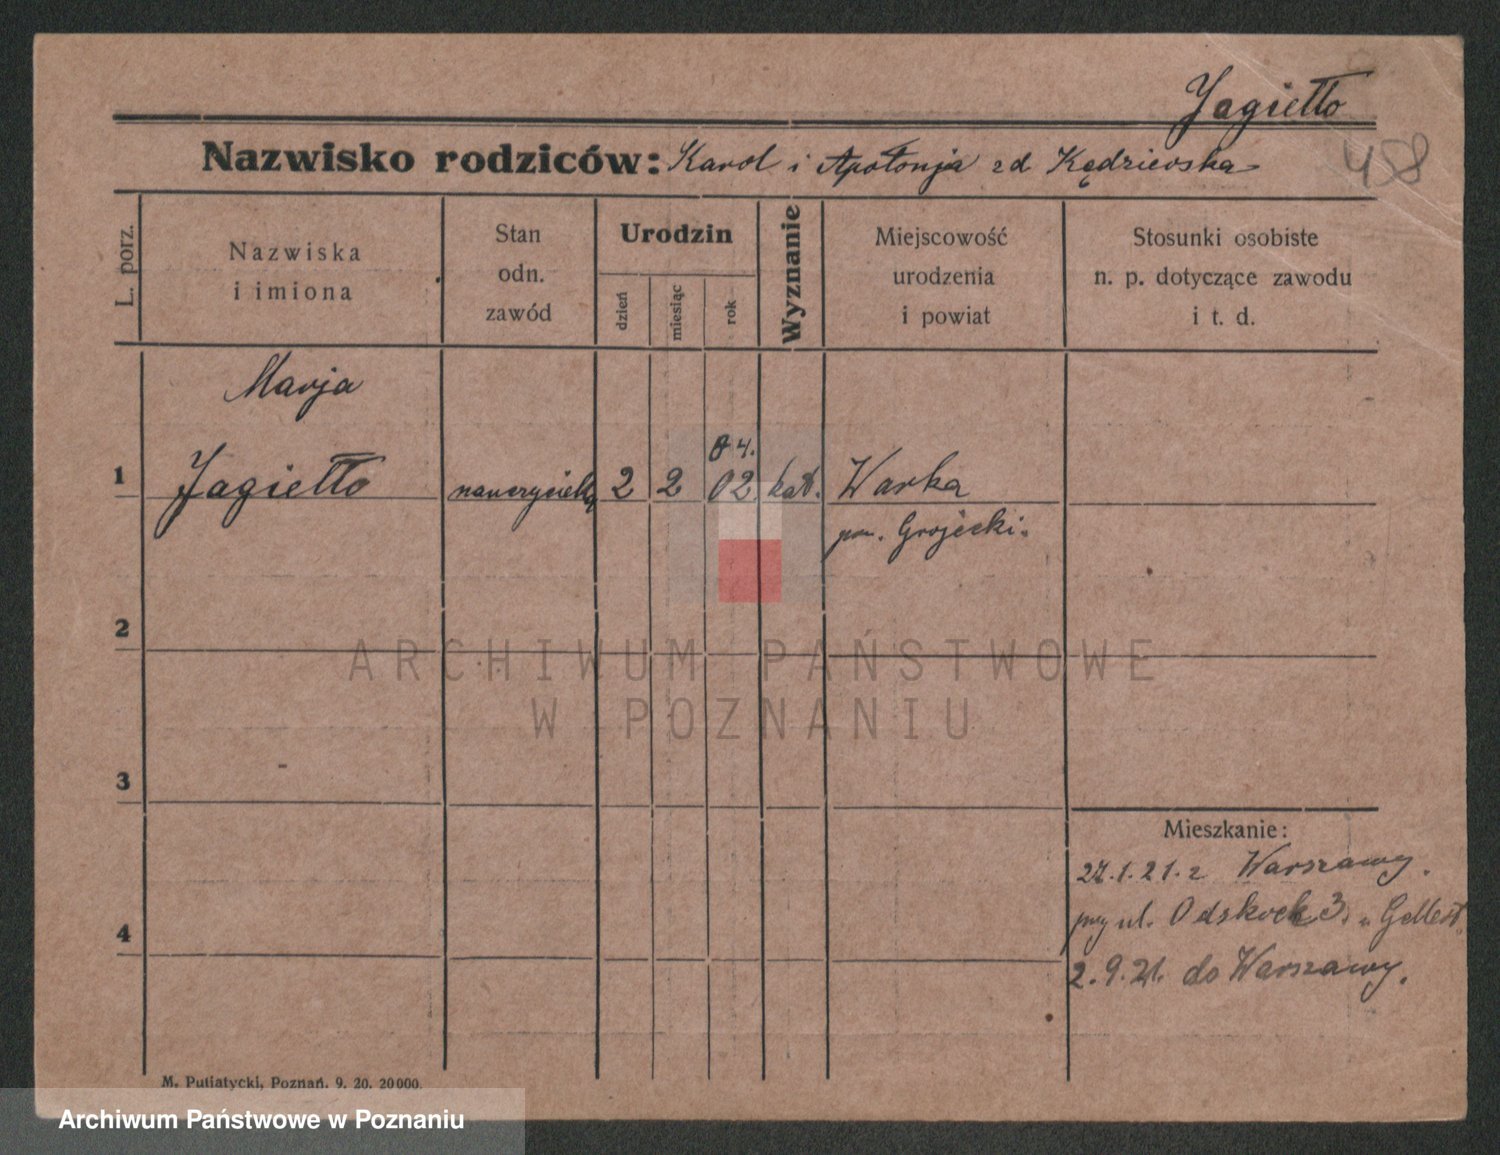 Jagiełło
458
Nazwisko rodziców: Karol i Apołonja zd Kędzierska
L. porz.
Nazwiska
i imiona
Stan
odn.
zawód
Urodzin
dzień
miesiąc
rok
Wyznanie
Miejscowość
urodzenia
i powiat
Stosunki osobiste
n. p. dotyczące zawodu
i t. d.
Marja
84.
1 Jagiełło nauczycielka 2 2 02 kat. Warka
pow. Grojecki.
2
ARCHIWUM PAŃSTWOWE
W POZNANIU
3
Mieszkanie:
27.1.21. z Warszawy.
przy ul. Odskok 3.
4
2.9.21. do Warszawy.
M. Putiatycki, Poznań. 9. 20. 20000.
Archiwum Państwowe w Poznaniu